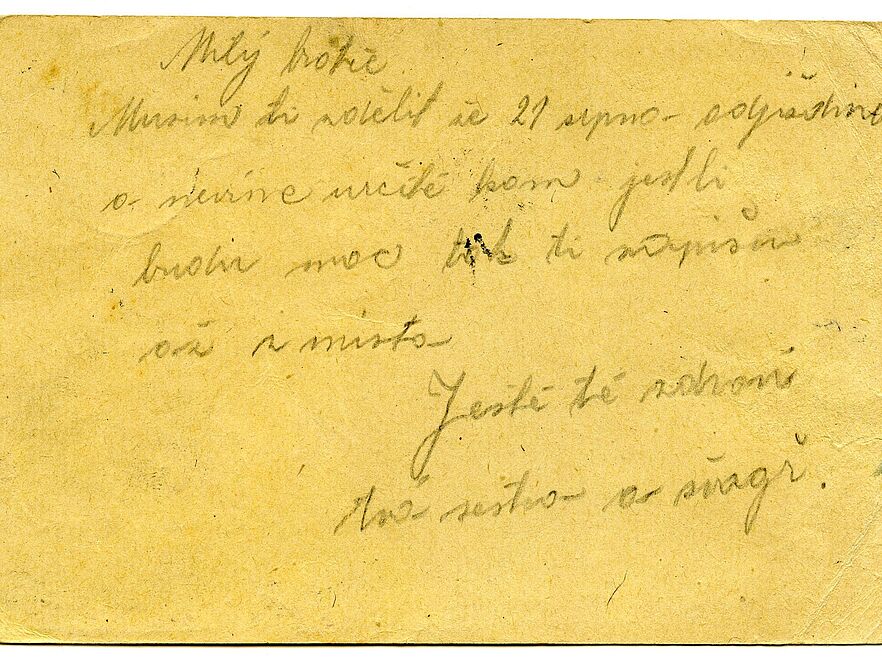 Milý bratře
Musím ti zdělit že 21 srpna odjíždíme
a nevíme určitě kam jestli
budu moc tak ti napíšu
až z místa
Ještě tě zdraví
tvá sestra a švagr.